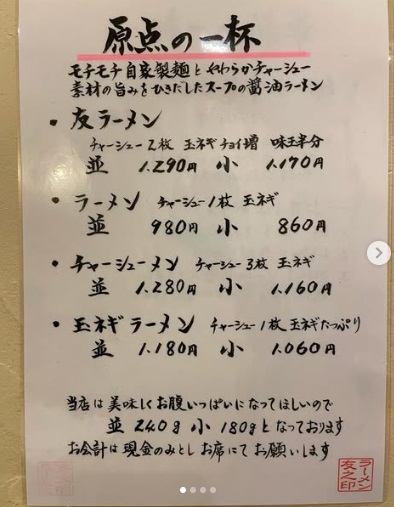 原点の一杯
モチモチ自家製麺とやわらかチャーシュー
素材の旨みをひきだしたスープの醤油ラーメン
・友ラーメン
チャーシュー2枚 玉ネギチョイ増 味玉半分
並 1.290円 小 1.170円
・ラーメン チャーシュー1枚 玉ネギ
並 980円 小 860円
・チャーシューメン チャーシュー3枚 玉ネギ
並 1.280円 小 1.160円
・玉ネギラーメン チャーシュー1枚 玉ネギたっぷり
並 1.180円 小 1.060円
当店は美味しくお腹いっぱいになってほしいので
並 240g 小 180gとなっております
お会計は現金のみとしお席にてお願いします
ラーメン
友之印